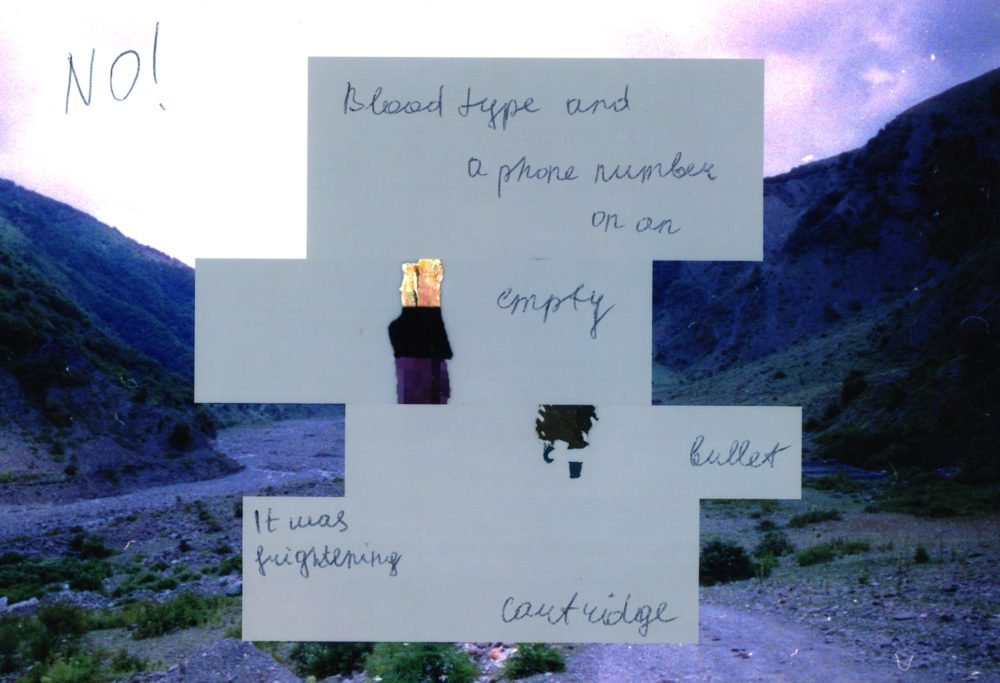 NO!
Blood type and
a phone number
on an
empty
bullet
It was
frightening
cartridge